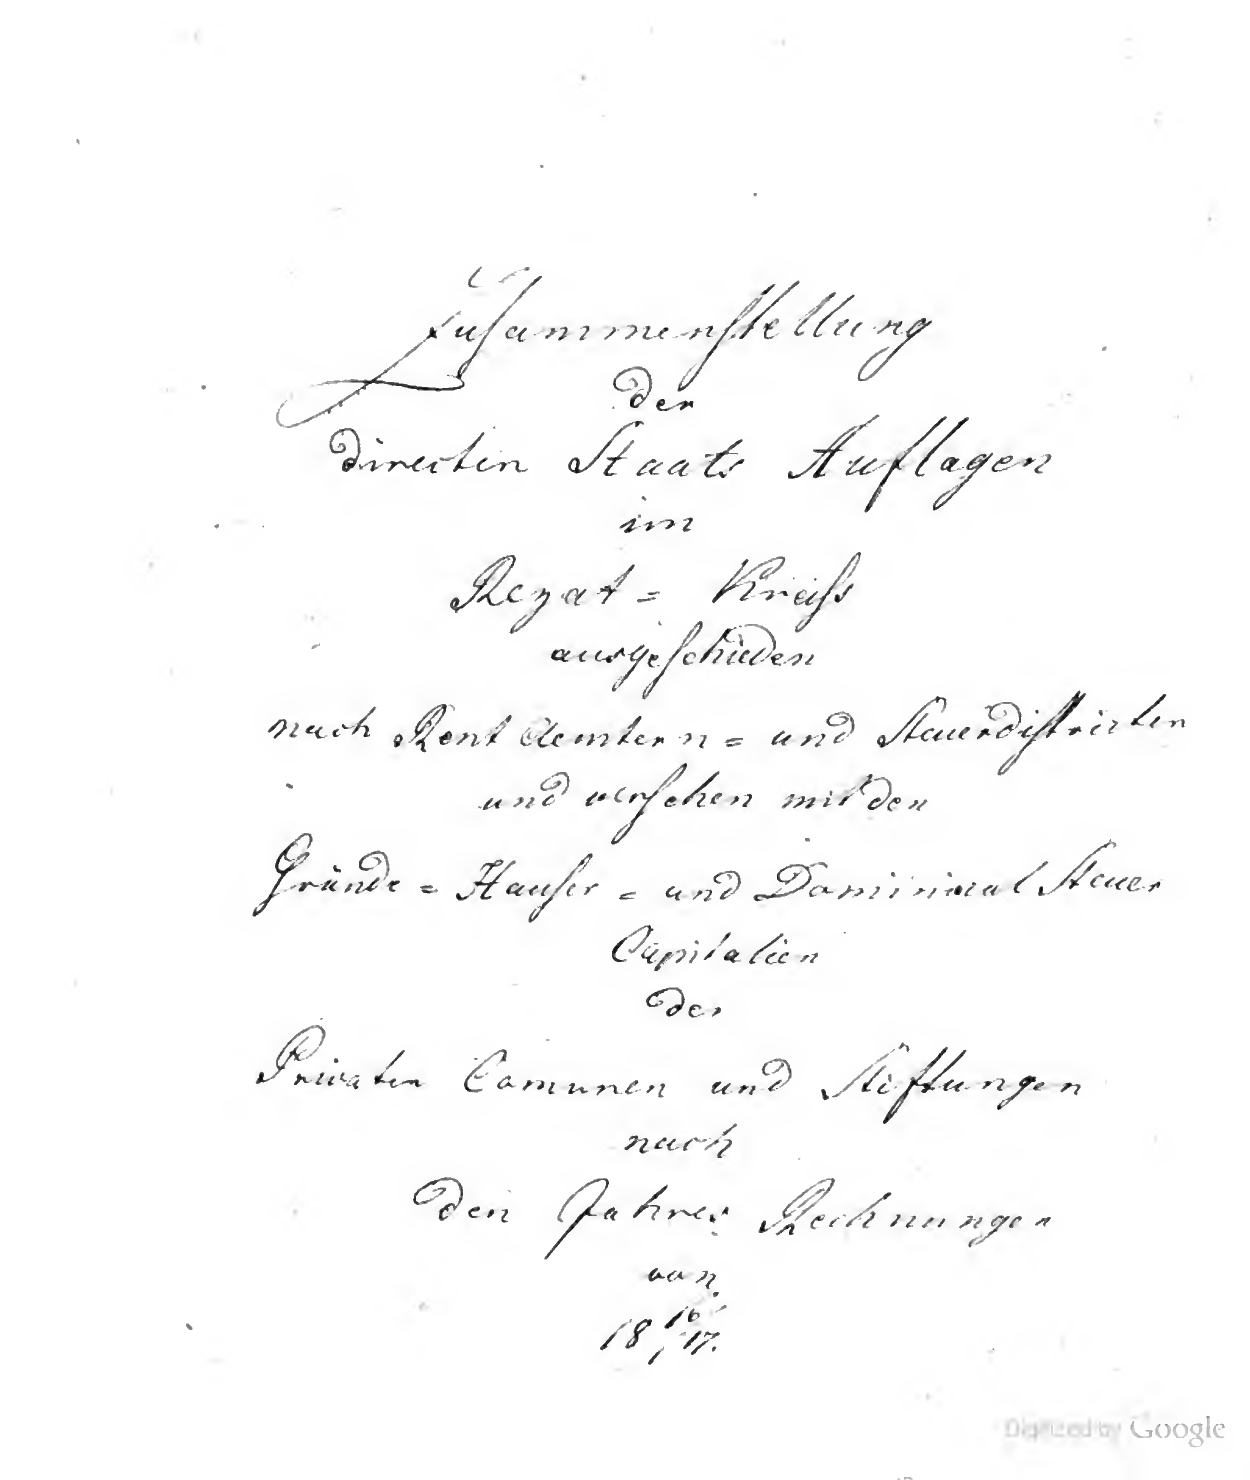 Zusammenstellung
der
directen Staats Auflagen
im
Rezat = Kreiss
ausgeschieden
nach Rent Aemtern = und Steuerdistricten
und versehen mit den
Gründe = Hauser = und Dominical Steuer
Capitalien
der
Privaten Comunen und Stiftungen
nach
den Jahres Rechnungen
von
18 16/17.
Digitized by Google